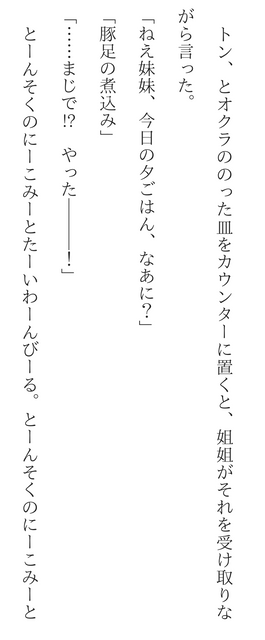 トン、とオクラののった皿をカウンターに置くと、姐姐がそれを受け取りな
がら言った。
「ねえ妹妹、今日の夕ごはん、なあに？」
「豚足の煮込み」
「……まじで!?　やった――！」
とーんそくのにーこみーとたーいわーんびーる。とーんそくのにーこみーと